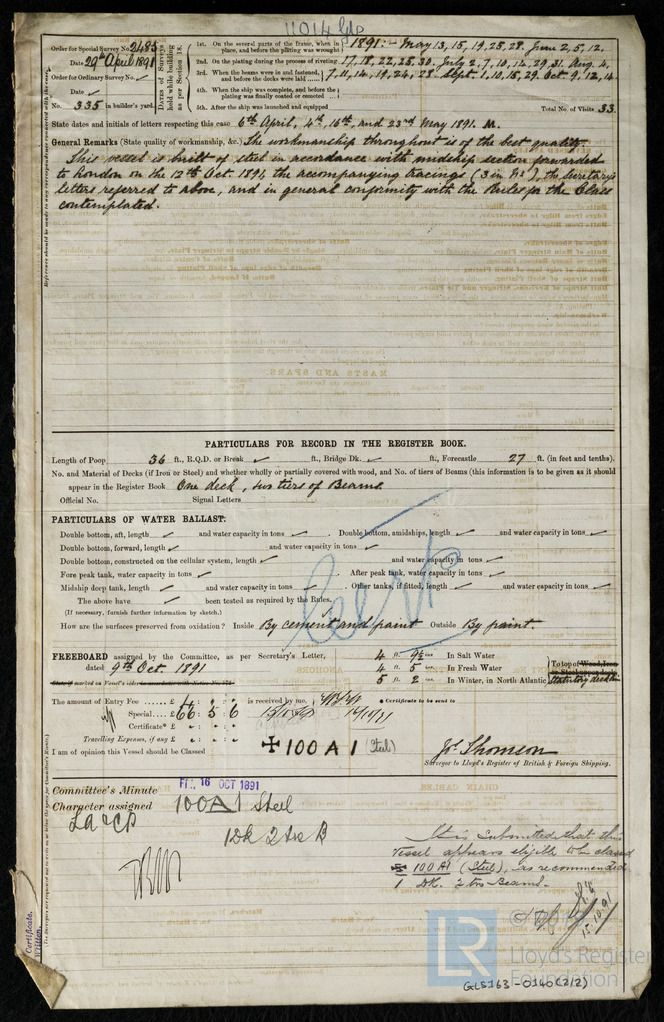 11014 Gls
Order for Special Survey No. 2485
Date 29th April 1891
Order for Ordinary Survey No. ✓
Date ✓
No. 335 in builder's yard.
Dates of Surveys held while building as per Section 18.
1st. On the several parts of the frame, when in place, and before the plating was wrought 1891:- May 13, 15, 19, 25, 28. June 2, 5, 12.
2nd. On the plating during the process of riveting 17, 18, 22, 25, 30. July 2, 7, 10, 14, 29, 31. Aug. 4.
3rd. When the beams were in and fastened, and before the decks were laid 7, 11, 14, 19, 24, 28. Sept. 1, 10, 15, 29. Oct. 9, 12, 14.
4th. When the ship was complete, and before the plating was finally coated or cemented
5th. After the ship was launched and equipped
Total No. of Visits 33.
State dates and initials of letters respecting this case 6th April, 4th, 16th, and 23rd May 1891. M.
General Remarks (State quality of workmanship, &c.) The workmanship throughout is of the best quality.
This vessel is built of steel in accordance with midship section forwarded
to London on the 12th Oct. 1891, the accompanying tracings (3 in No.), the Secretary's
letters referred to above, and in general conformity with the Rules for the Class
contemplated.
PARTICULARS FOR RECORD IN THE REGISTER BOOK.
Length of Poop 36 ft., R.Q.D. or Break ✓ ft., Bridge Dk. ✓ ft., Forecastle 27 ft. (in feet and tenths).
No. and Material of Decks (if Iron or Steel) and whether wholly or partially covered with wood, and No. of tiers of Beams (this information is to be given as it should
appear in the Register Book One deck, two tiers of Beams.
Official No. Signal Letters
PARTICULARS OF WATER BALLAST:
Double bottom, aft, length ✓ and water capacity in tons ✓ . Double bottom, amidships, length ✓ and water capacity in tons ✓
Double bottom, forward, length ✓ and water capacity in tons ✓
Double bottom, constructed on the cellular system, length ✓ and water capacity in tons ✓
Fore peak tank, water capacity in tons ✓ . After peak tank, water capacity in tons ✓
Midship deep tank, length ✓ and water capacity in tons ✓ . Other tanks, if fitted, length ✓ and water capacity in tons ✓
The above have ✓ been tested as required by the Rules.
(If necessary, furnish further information by sketch.)
How are the surfaces preserved from oxidation? Inside By cement and paint Outside By paint.
Certs
FREEBOARD assigned by the Committee, as per Secretary's Letter, 4 ft. 9½ ins. In Salt Water
dated 9th Oct. 1891 4 ft. 5 ins. In Fresh Water
5 ft. 2 ins. In Winter, in North Atlantic
To top of Wood, Iron
statutory deckline
The amount of Entry Fee £ 4 : : is received by me,
Special £ 66 : 5 : 6
Certificate* £ : :
Travelling Expenses, if any £ : :
* Certificate to be sent to
I am of opinion this Vessel should be Classed ✠ 100 A 1 (Steel)
Js. Thomson
Surveyor to Lloyd's Register of British & Foreign Shipping.
Committee's Minute FRI. 16 OCT 1891
Character assigned 100A1 Steel
LA & CP
1Dk 2 trs B
It is submitted that this
Vessel appears eligible to be classed
✠ 100 A1 (Steel), as recommended
1 Dk. 2 trs Beams.
15.10.91
Certificate
Written.
LR
©
Lloyd's Register
Foundation
GLS163-0140(2/2)